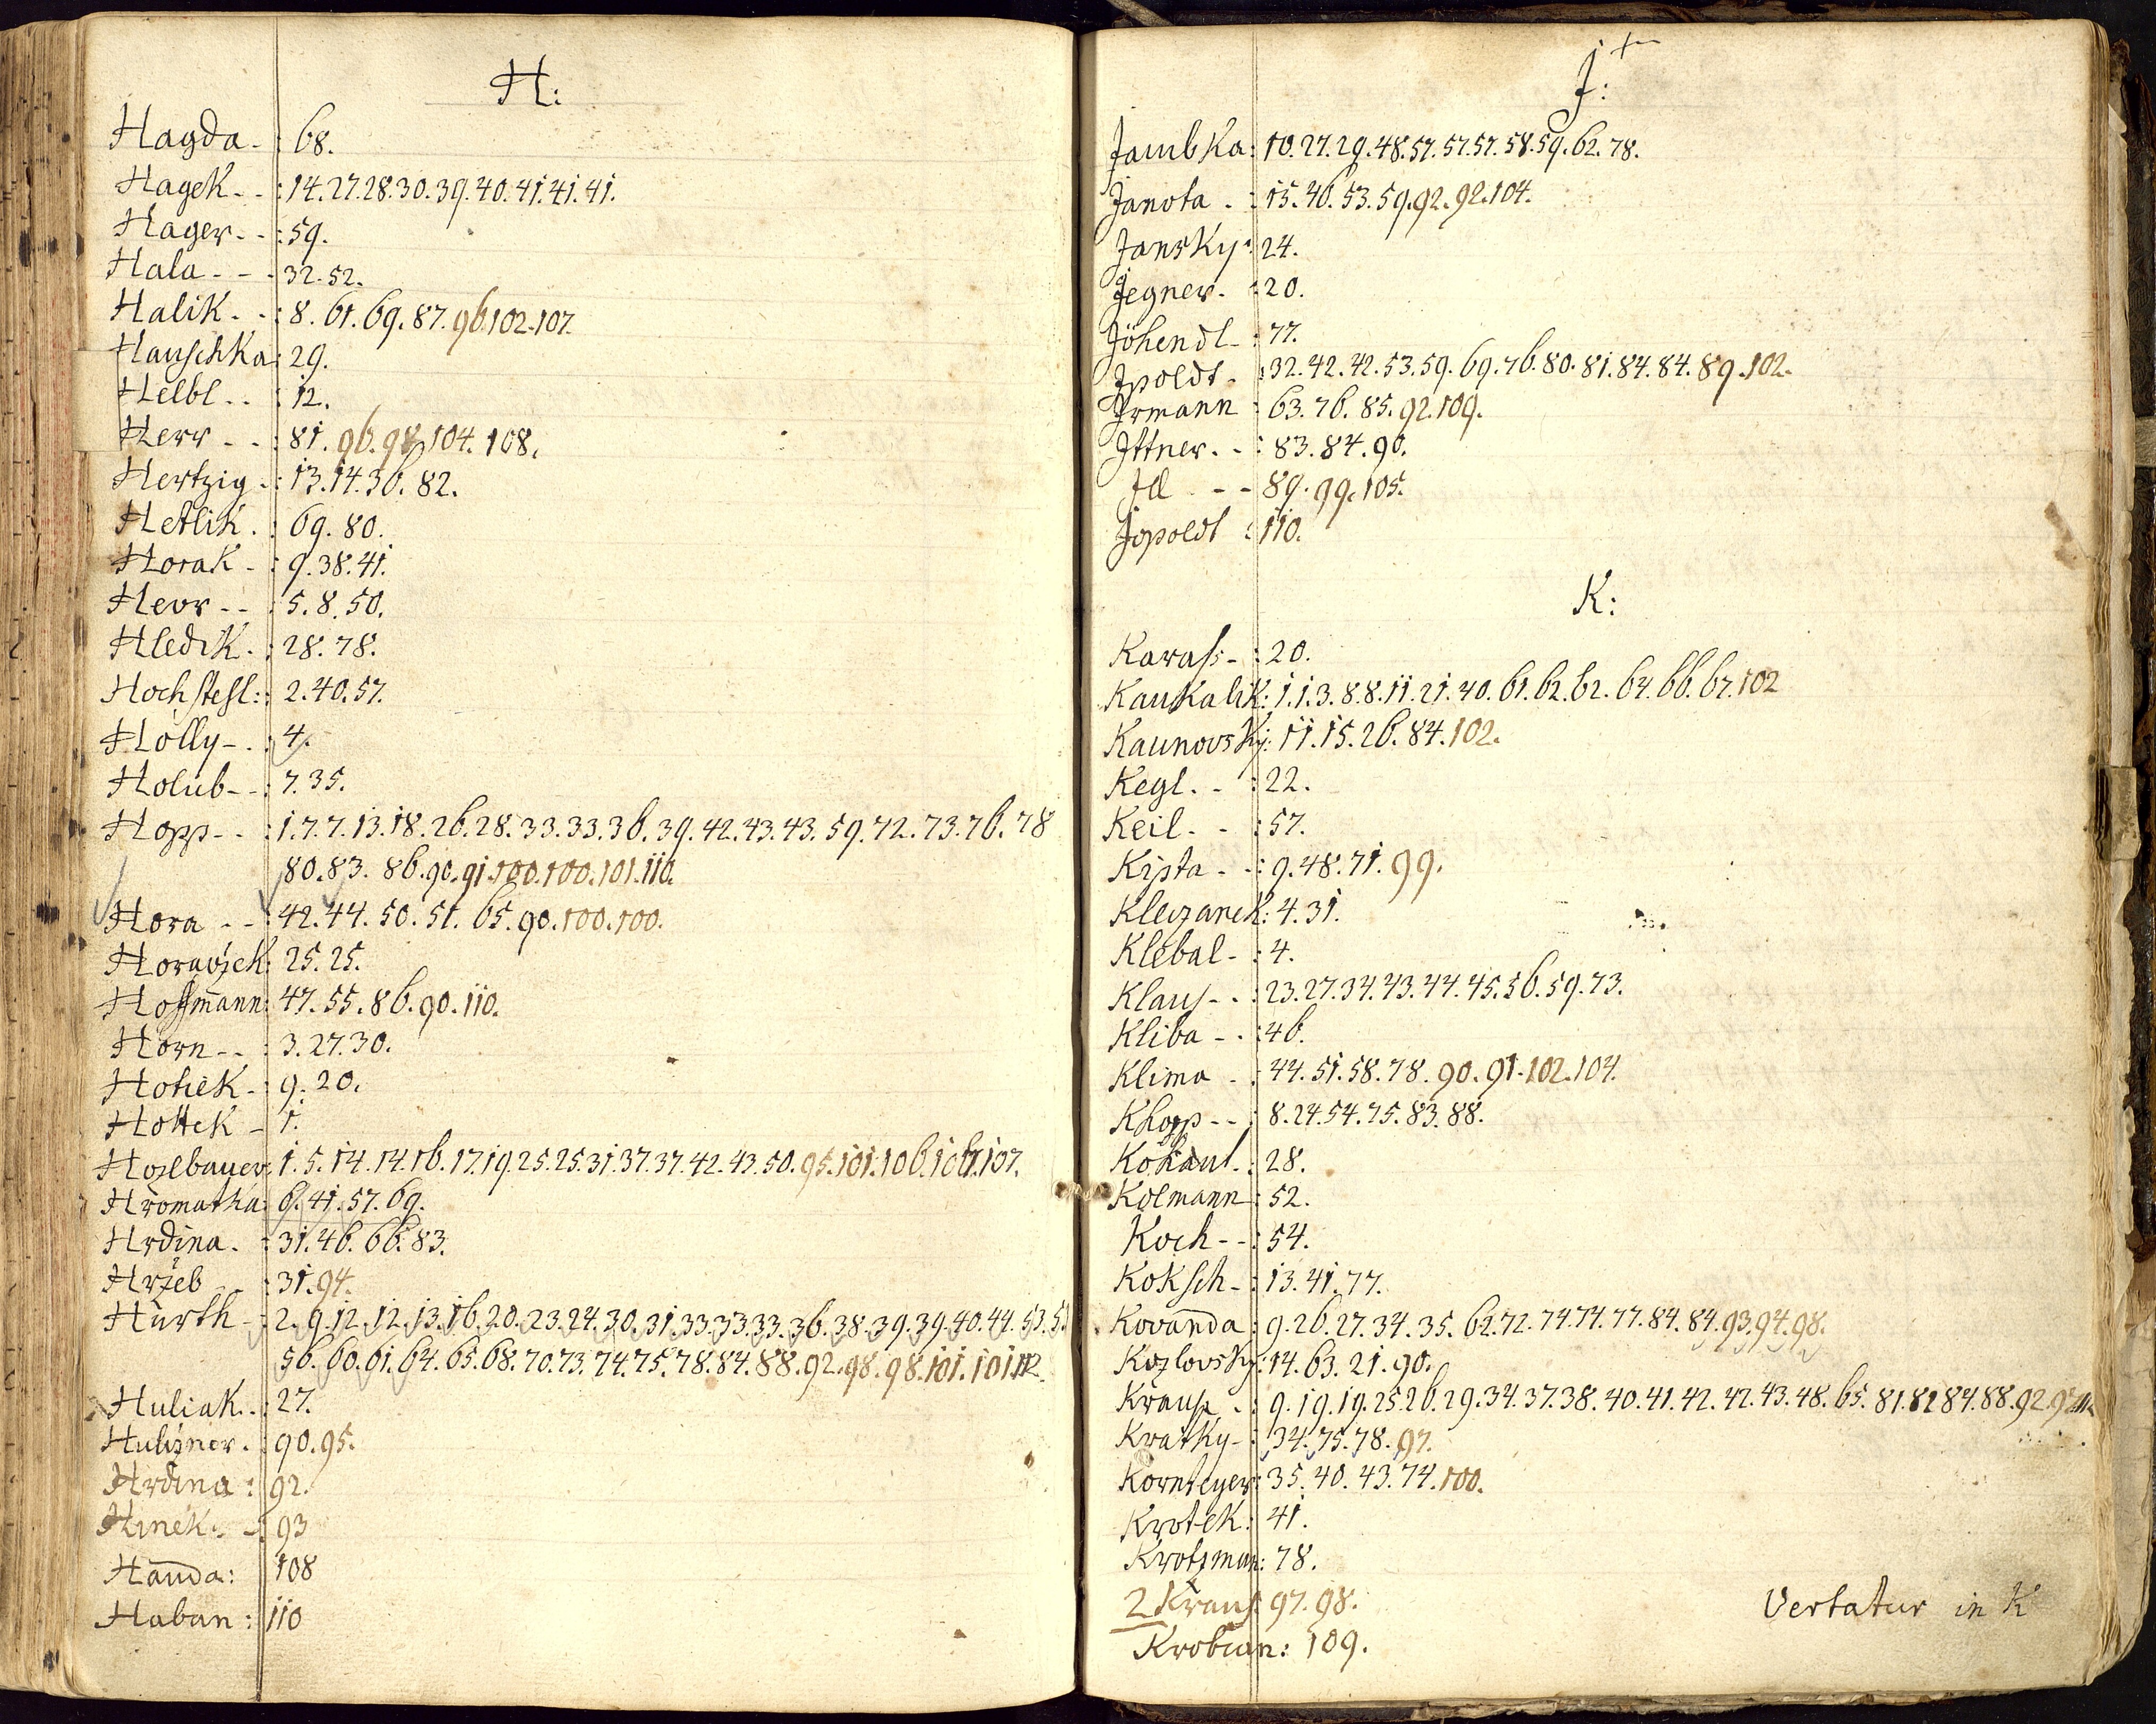 H:
Hagda - : 68.
Hagek - - : 14. 27. 28. 30. 39. 40. 41. 41. 41.
Hager - - : 59.
Hala - - - 32. 52.
Halik - - : 8. 61. 69. 87. 96. 102. 107.
Hauschka : 29.
Helbl - - : 12.
Herr - - : 81. 96. 98. 104. 108.
Hertzig - : 13. 14. 36. 82.
Hetlik . : 69. 80.
Horak - : 9. 38. 41.
Heor - - : 5. 8. 50.
Hledik . : 28. 78.
Hochstesl : : 2. 40. 57.
Holly - . : 4.
Holub - - : 7. 35.
Hopp - - : 1. 7. 7. 13. 18. 26. 28. 33. 33. 36. 39. 42. 43. 43. 59. 72. 73. 76. 78
80. 83. 86. 90. 91. 100. 100. 101. 110.
Hora - - : 42. 44. 50. 51. 65. 90. 100. 100.
Horaczek : 25. 25.
Hoffmann : 47. 55. 86. 90. 110.
Horn - - : 3. 27. 30.
Hotiek - : 9. 20.
Hottek - 1.
Hozlbauer : 1. 5. 14. 14. 16. 17. 19. 25. 25. 31. 37. 37. 42. 43. 50. 95. 101. 106. 107.
Hromatka : 6. 41. 57. 69.
Hrdina . : 31. 46. 66. 83.
Hržeb - : 31. 94.
Hürth - : 2. 9. 12. 12. 13. 16. 20. 23. 24. 30. 31. 33. 33. 33. 36. 38. 39. 39. 40. 44. 53.
56. 60. 61. 64. 65. 68. 70. 73. 74. 75. 78. 84. 88. 92. 98. 98. 101. 101. 112.
Huliak . : 27.
Hulizner . : 90. 95.
Hrdina : 92.
Hinek . - : 93
Handa : 108
Haban : 110
J:
Jambka : 10. 27. 29. 48. 57. 57. 57. 58. 59. 62. 78.
Janota . : 15. 46. 53. 59. 92. 92. 104.
Jansky : 24.
Jegner . : 20.
Jöhendl - : 77.
Jpoldt . : 32. 42. 42. 53. 59. 69. 76. 80. 81. 84. 84. 89. 102.
Jrmann : 63. 76. 85. 92. 109.
Jttner . - : 83. 84. 90.
Jll - - 89. 99. 105.
Jopoldt : 110.
K:
Karass - : 20.
Kaukalik : 1. 1. 3. 8. 8. 11. 21. 40. 61. 62. 62. 64. 66. 67. 102
Kaunovsky : 11. 15. 26. 84. 102.
Kegl . - : 22.
Keil . - : 57.
Kipta . - : 9. 48. 71. 99.
Kleczanek : 4. 31.
Klebal - : 4.
Klaus - . : 23. 27. 34. 43. 44. 45. 56. 59. 73.
Kliba - . : 46.
Klima - : 44. 51. 58. 78. 90. 91. 102. 104.
Khopp - - : 8. 24. 54. 75. 83. 88.
Kokaul . : 28.
Kolmann : 52.
Koch - - : 54.
Koksch - : 13. 41. 77.
Kovanda : 9. 26. 27. 34. 35. 62. 72. 74. 74. 77. 84. 84. 93. 94. 98.
Kozlovsky : 14. 63. 21. 90.
Kraus - : 9. 19. 19. 25. 26. 29. 34. 37. 38. 40. 41. 42. 42. 43. 48. 65. 81. 82. 84. 88. 92.
Kratky - : 34. 75. 78. 97.
Kornteyer : 35. 40. 43. 74. 100.
Krotek : 41.
Krotzman : 78.
2 Kraus : 97. 98.
Krobian : 109.
Vertatur in K